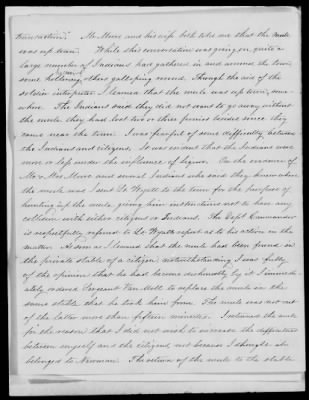 transaction. Mr Moore and his wife both told me that the mule
was up town. While this conversation was going on, quite a
large number of Indians had gathered in and around the town
some hollering &amp; others galloping around. Through the aid of the
soldier interpreter I learned that the mule was up town, some-
where. The Indians said they did not want to go away without
the mule, they had lost two or three ponies besides since they
came near the town. I was fearful of some difficulty between
the Indians and citizens. It was evident that the Indians were
more or less under the influence of liquor. On the evidence of
Mr & Mrs Moore and several Indians who said they knew where
the mule was I sent Lt Wyatt to the town for the purpose of
hunting up the mule, giving him instructions not to have any
collision with either citizens or Indians. The Dept Commander
is respectfully referred to Lt Wyatt report as to his action in the
matter. As soon as I learned that the mule had been found in
the private stable of a citizen, notwithstanding I was fully
of the opinion that he had become dishonestly by it I immed-
iately ordered Sergeant Van Moll to replace the mule in the
same stable that he took him from. The mule was not out
of the latter more than fifteen minutes. I returned the mule
for the reason that I did not wish to increase the difficulties
between myself and the citizens, not because I thought it
belonged to Newman. The return of the mule to the stable